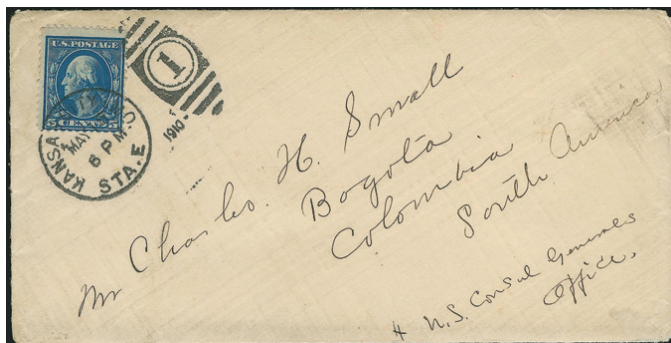 U.S. POSTAGE
5 CENTS 5
KANSAS
MAY
6 PM
STA. E
1910
1
Mr Charles. H. Small
Bogota
Colombia
South America
U.S. Consul Generals
Office.